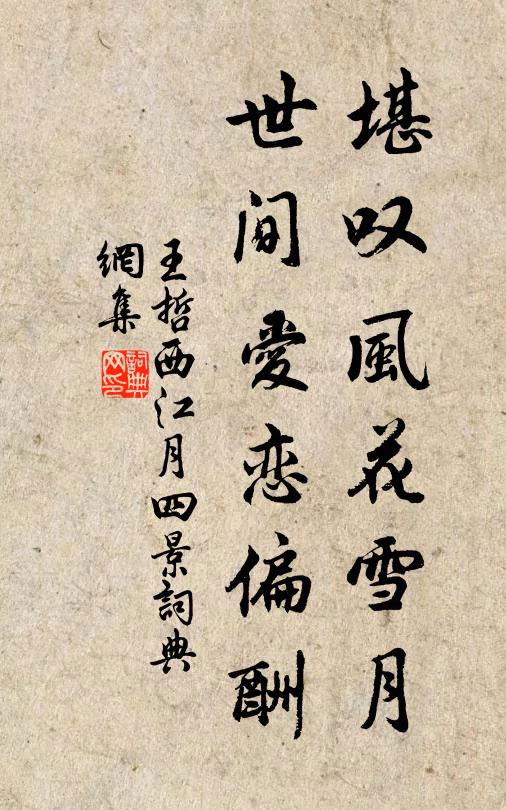 堪叹風花雪月
世间愛恋偏酬
王哲西江月四景詞典
網集
詞典
网印